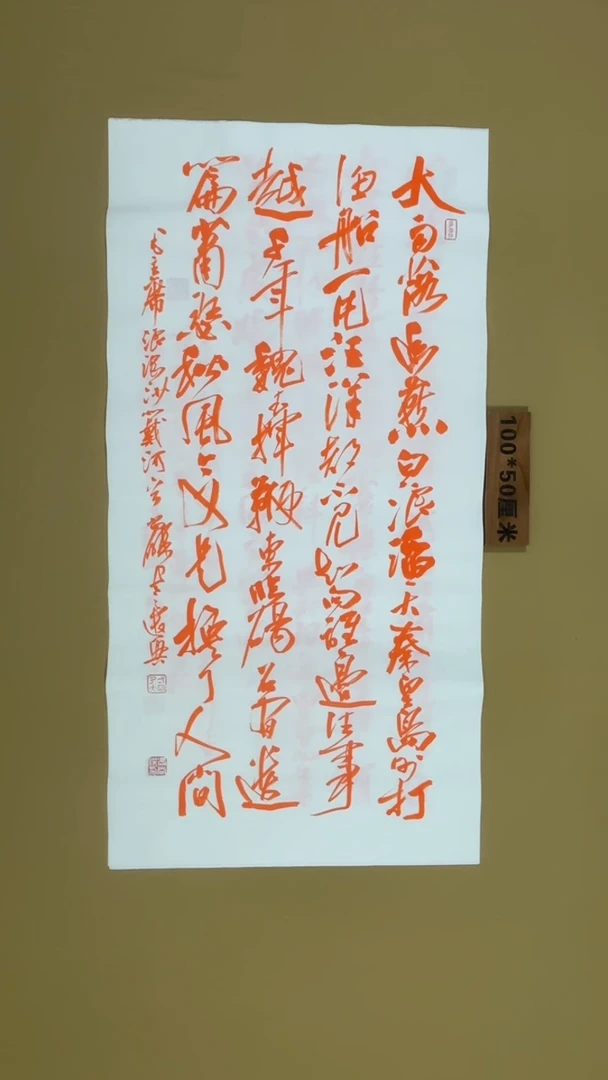 大雨落幽燕白浪滔天秦皇島外打
漁船一片汪洋都不見知向誰邊往事
越千年魏武揮鞭東臨碣石有遺
篇蕭瑟秋風今又是換了人間
毛主席浪淘沙北戴河
100*50厘米